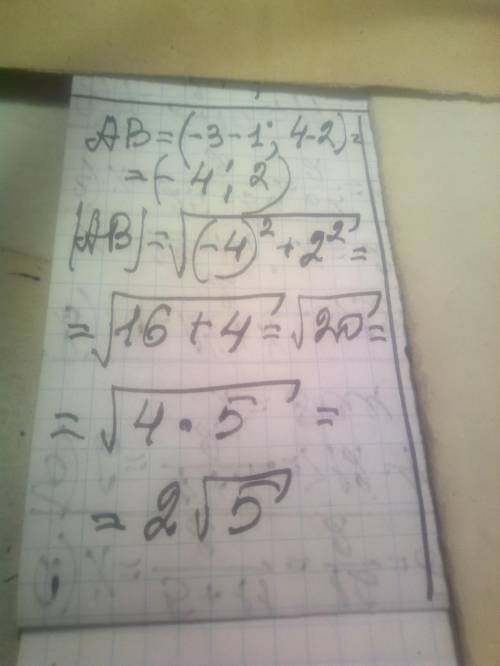 AB = (-3-1; 4-2) =
= (-4; 2)
|AB| = √((-4)² + 2²) =
= √(16 + 4) = √20 =
= √(4 · 5) =
= 2√5